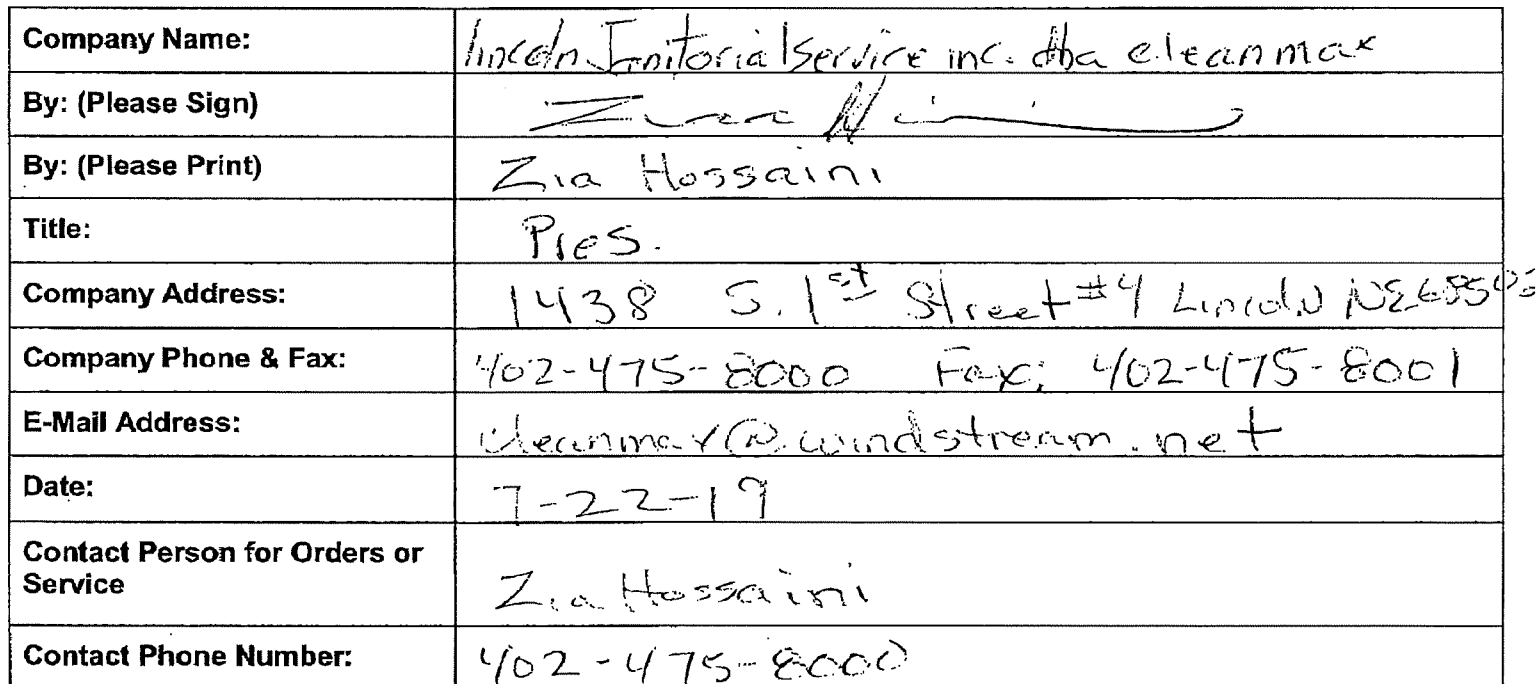 Company Name: lincoln Janitorial Service inc. dba cleanmax
By: (Please Sign)
By: (Please Print) Zia Hossaini
Title: Pres.
Company Address: 1438 S. 1st Street #4 Lincoln NE 68502
Company Phone & Fax: 402-475-8000 Fax: 402-475-8001
E-Mail Address: cleanmax@windstream.net
Date: 7-22-19
Contact Person for Orders or
Service Zia Hossaini
Contact Phone Number: 402-475-8000